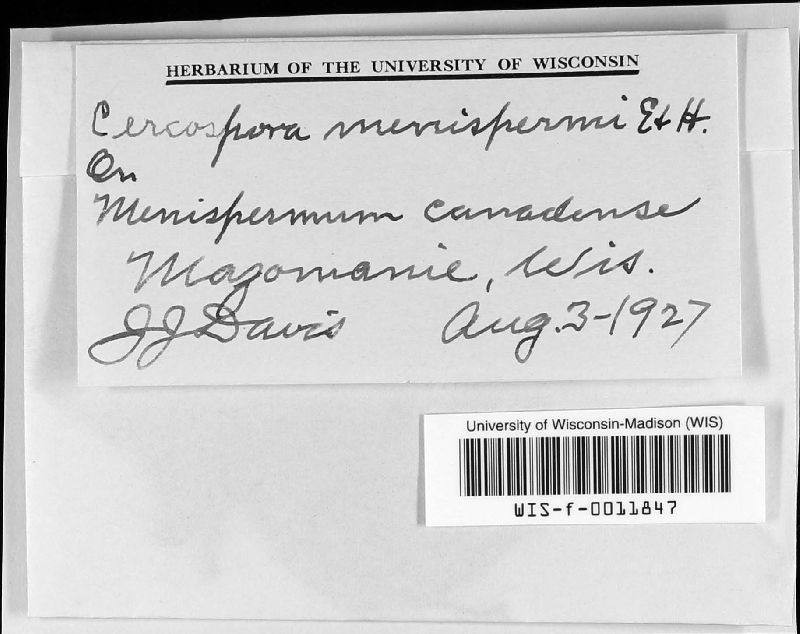 HERBARIUM OF THE UNIVERSITY OF WISCONSIN
Cercospora menispermi E & H.
On
Menispermum canadense
Mazomanie, Wis.
JJ Davis Aug. 3-1927
University of Wisconsin-Madison (WIS)
WIS-f-0011847